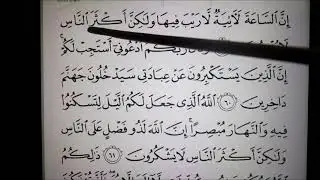 إِنَّ ٱلسَّاعَةَ لَآتِيَةٌ لَّا رَيْبَ فِيهَا وَلَٰكِنَّ أَكْثَرَ ٱلنَّاسِ
رَبُّكُمُ ٱدْعُونِىٓ أَسْتَجِبْ لَكُمْ ۚ
إِنَّ ٱلَّذِينَ يَسْتَكْبِرُونَ عَنْ عِبَادَتِى سَيَدْخُلُونَ جَهَنَّمَ
دَاخِرِينَ ٦٠ ٱللَّهُ ٱلَّذِى جَعَلَ لَكُمُ ٱلَّيْلَ لِتَسْكُنُوا۟
فِيهِ وَٱلنَّهَارَ مُبْصِرًا ۚ إِنَّ ٱللَّهَ لَذُو فَضْلٍ عَلَى ٱلنَّاسِ
وَلَٰكِنَّ أَكْثَرَ ٱلنَّاسِ لَا يَشْكُرُونَ ٦١ ذَٰلِكُمُ